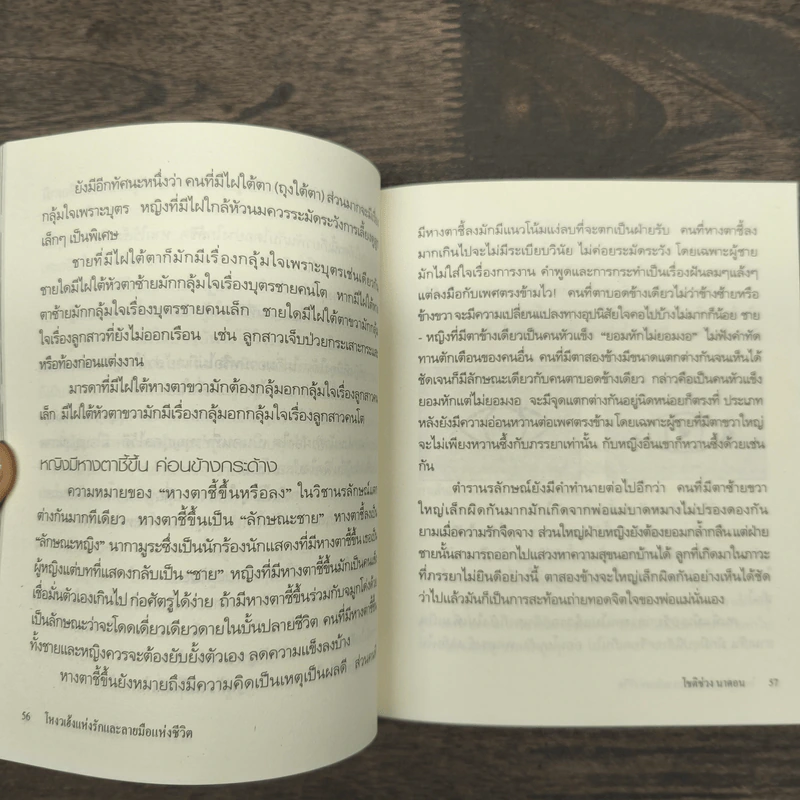 ยังมีอีกทัศนะหนึ่งว่า คนที่มีไฝใต้ตา (ถุงใต้ตา) ส่วนมากจะมี
กลุ้มใจเพราะบุตร หญิงที่มีไฝใกล้หัวนมควรระมัดระวังการเลี้ยง
เล็กๆ เป็นพิเศษ
ชายที่มีไฝใต้ตาก็มักมีเรื่องกลุ้มใจเพราะบุตรเช่นเดียวกัน
ชายใดมีไฝใต้หัวตาซ้ายมักกลุ้มใจเรื่องบุตรชายคนโต หากมีไฝใต้หาง
ตาซ้ายมักกลุ้มใจเรื่องบุตรชายคนเล็ก ชายใดมีไฝใต้ตาขวามักกลุ้ม
ใจเรื่องลูกสาวที่ยังไม่ออกเรือน เช่น ลูกสาวเจ็บป่วยกระเสาะกระแสะ
หรือท้องก่อนแต่งงาน
มารดาที่มีไฝใต้หางตาขวามักต้องกลุ้มอกกลุ้มใจเรื่องลูกสาวคน
เล็ก มีไฝใต้หัวตาขวามักมีเรื่องกลุ้มอกกลุ้มใจเรื่องลูกสาวคนโต
หญิงมีหางตาชี้ขึ้น ค่อนข้างกระด้าง
ความหมายของ “หางตาชี้ขึ้นหรือลง” ในวิชานรลักษณ์แตก
ต่างกันมากทีเดียว หางตาชี้ขึ้นเป็น “ลักษณะชาย” หางตาชี้ลงเป็น
“ลักษณะหญิง” นากามูระซึ่งเป็นนักร้องนักแสดงที่มีหางตาชี้ขึ้น เธอเป็น
ผู้หญิงแต่บทที่แสดงกลับเป็น “ชาย” หญิงที่มีหางตาชี้ขึ้นมักเป็นคนเชื่อ
เชื่อมั่นตัวเองเกินไป ก่อศัตรูได้ง่าย ถ้ามีหางตาชี้ขึ้นร่วมกับจมูกโด่งด้วย
เป็นลักษณะว่าจะโดดเดี่ยวเดียวดายในบั้นปลายชีวิต คนที่มีหางตาชี้ขึ้น
ทั้งชายและหญิงควรจะต้องยับยั้งตัวเอง ลดความแข็งลงบ้าง
หางตาชี้ขึ้นยังหมายถึงมีความคิดเป็นเหตุเป็นผลดี ส่วนคนที่
56 โหงวเฮ้งแห่งรักและลายมือแห่งชีวิต
มีหางตาชี้ลงมักมีแนวโน้มแง่ลบที่จะตกเป็นฝ่ายรับ คนที่หางตาชี้ลง
มากเกินไปจะไม่มีระเบียบวินัย ไม่ค่อยระมัดระวัง โดยเฉพาะผู้ชาย
มักไม่ใส่ใจเรื่องการงาน คำพูดและการกระทำเป็นเรื่องฝันลมๆแล้งๆ
แต่ลงมือกับเพศตรงข้ามไว! คนที่ตาบอดข้างเดียวไม่ว่าข้างซ้ายหรือ
ข้างขวา จะมีความเปลี่ยนแปลงทางอุปนิสัยใจคอไปบ้างไม่มากก็น้อย ชาย
- หญิงที่มีตาข้างเดียวเป็นคนหัวแข็ง “ยอมหักไม่ยอมงอ” ไม่ฟังคำทัด
ทานตักเตือนของคนอื่น คนที่มีตาสองข้างมีขนาดแตกต่างกันจนเห็นได้
ชัดเจนก็มีลักษณะเดียวกับคนตาบอดข้างเดียว กล่าวคือเป็นคนหัวแข็ง
ยอมหักแต่ไม่ยอมงอ จะมีจุดแตกต่างกันอยู่นิดหน่อยก็ตรงที่ ประเภท
หลังยังมีความอ่อนหวานต่อเพศตรงข้าม โดยเฉพาะผู้ชายที่มีตาขวาใหญ่
จะไม่เพียงหวานซึ้งกับภรรยาเท่านั้น กับหญิงอื่นเขาก็หวานซึ้งด้วยเช่น
กัน
ตำรานรลักษณ์ยังมีคำทำนายต่อไปอีกว่า คนที่มีตาซ้ายขวา
ใหญ่เล็กผิดกันมากมักเกิดจากพ่อแม่บาดหมางไม่ปรองดองกัน
ยามเมื่อความรักจืดจาง ส่วนใหญ่ฝ่ายหญิงยังต้องยอมกล้ำกลืน แต่ฝ่าย
ชายนั้นสามารถออกไปแสวงหาความสุขนอกบ้านได้ ลูกที่เกิดมาในภาวะ
ที่ภรรยาไม่ยินดีอย่างนี้ ตาสองข้างจะใหญ่เล็กผิดกันอย่างเห็นได้ชัด
ว่าไปแล้วมันก็เป็นการสะท้อนถ่ายทอดจิตใจของพ่อแม่นั่นเอง
โชติช่วง นาดอน 57